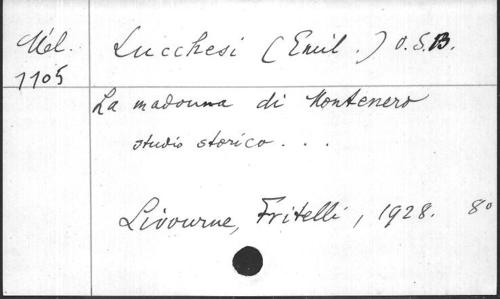 Mél. Lucchesi (Emil.) O.S.B.
1105
La madonna di Montenero
studio storico...
Livourne, Fritelli, 1928. 8°